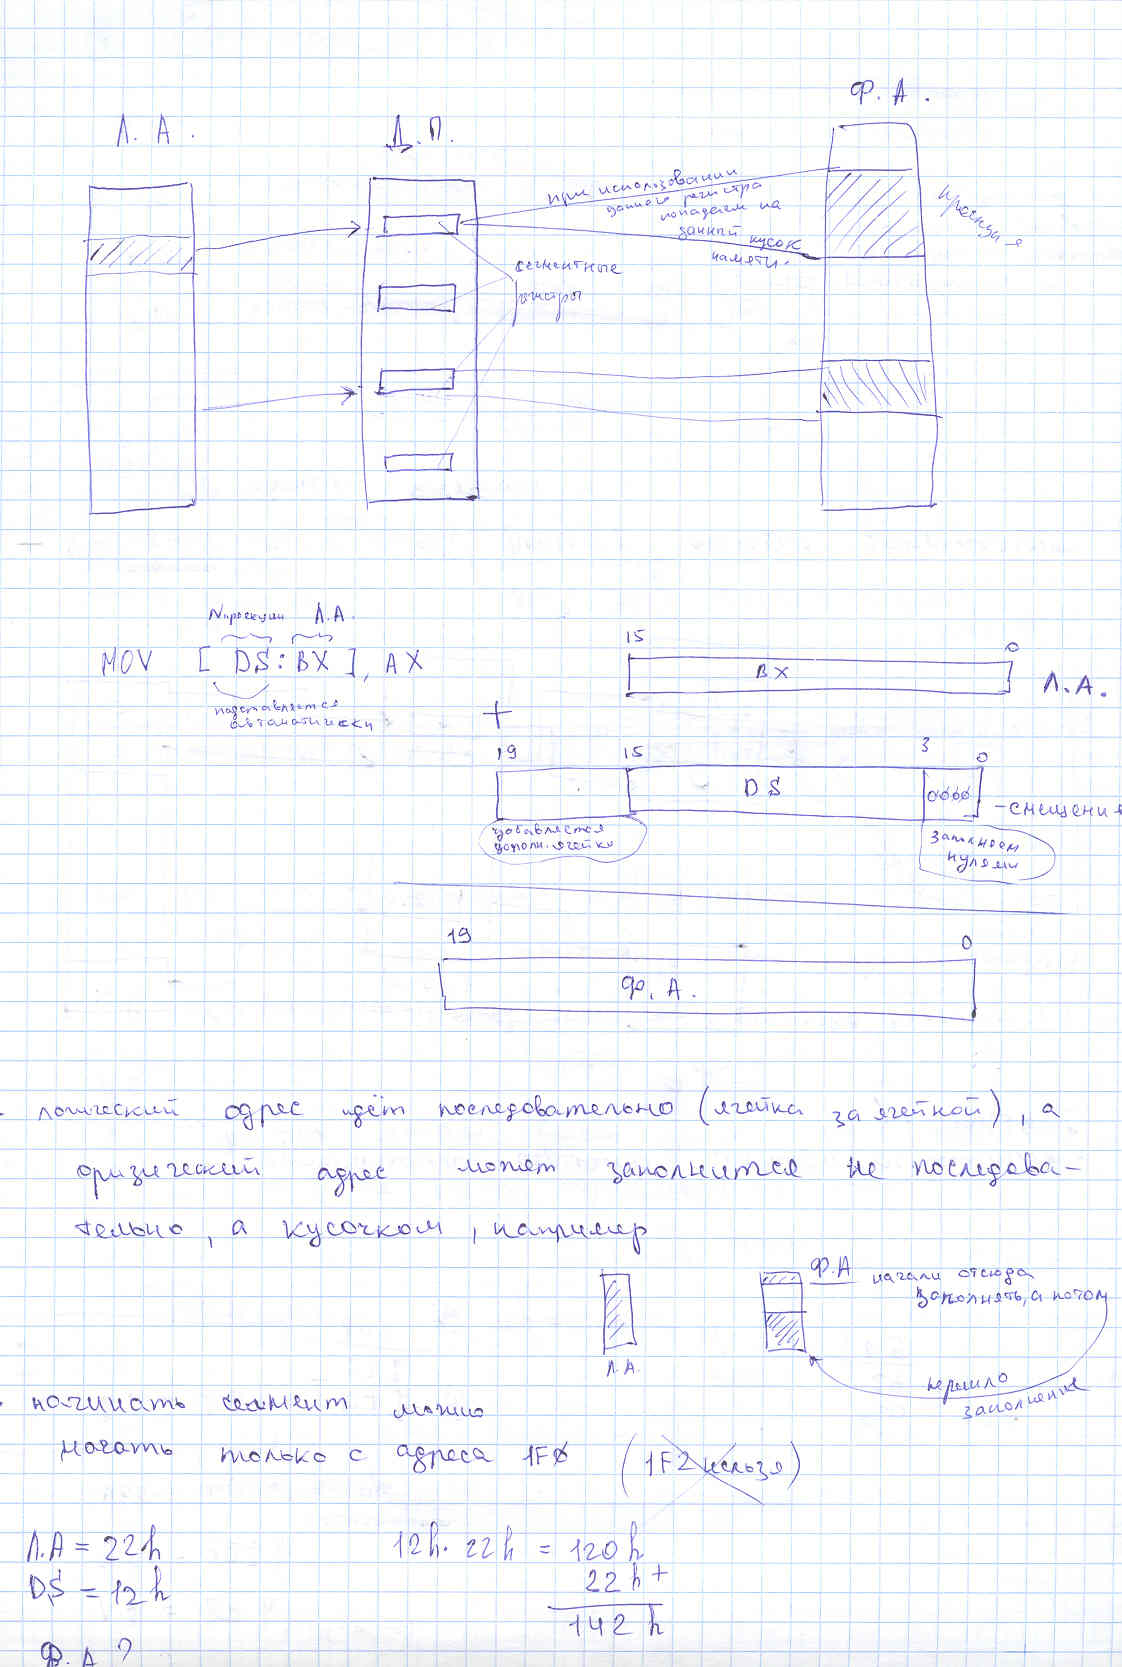 Л. А.
Д. П.
Ф. А.
при использовании
данного регистра
попадаем на
данный кусок
памяти.
сегментные
регистры
N проекции Л.А.
MOV [ DS : BX ], AX
подставляется
автоматически
15 0
BX
Л. А.
+
19 15 3 0
DS
0000
- смещение
добавляется
дополн. ячейки
заполняем
нулями
19 0
Ф. А.
логический адрес идёт последовательно (ячейка за ячейкой), а
физический адрес может заполнится не последова-
тельно, а кусочком, например
Ф.А начали отсюда
заполнять, а потом
Л.А.
перешло
заполнение
начинать сегмент можно
начать только с адреса 1F0 (1F2 нельзя)
Л.А = 22h
DS = 12h
12h. 22h = 120h
22h +
142h
Ф. А ?